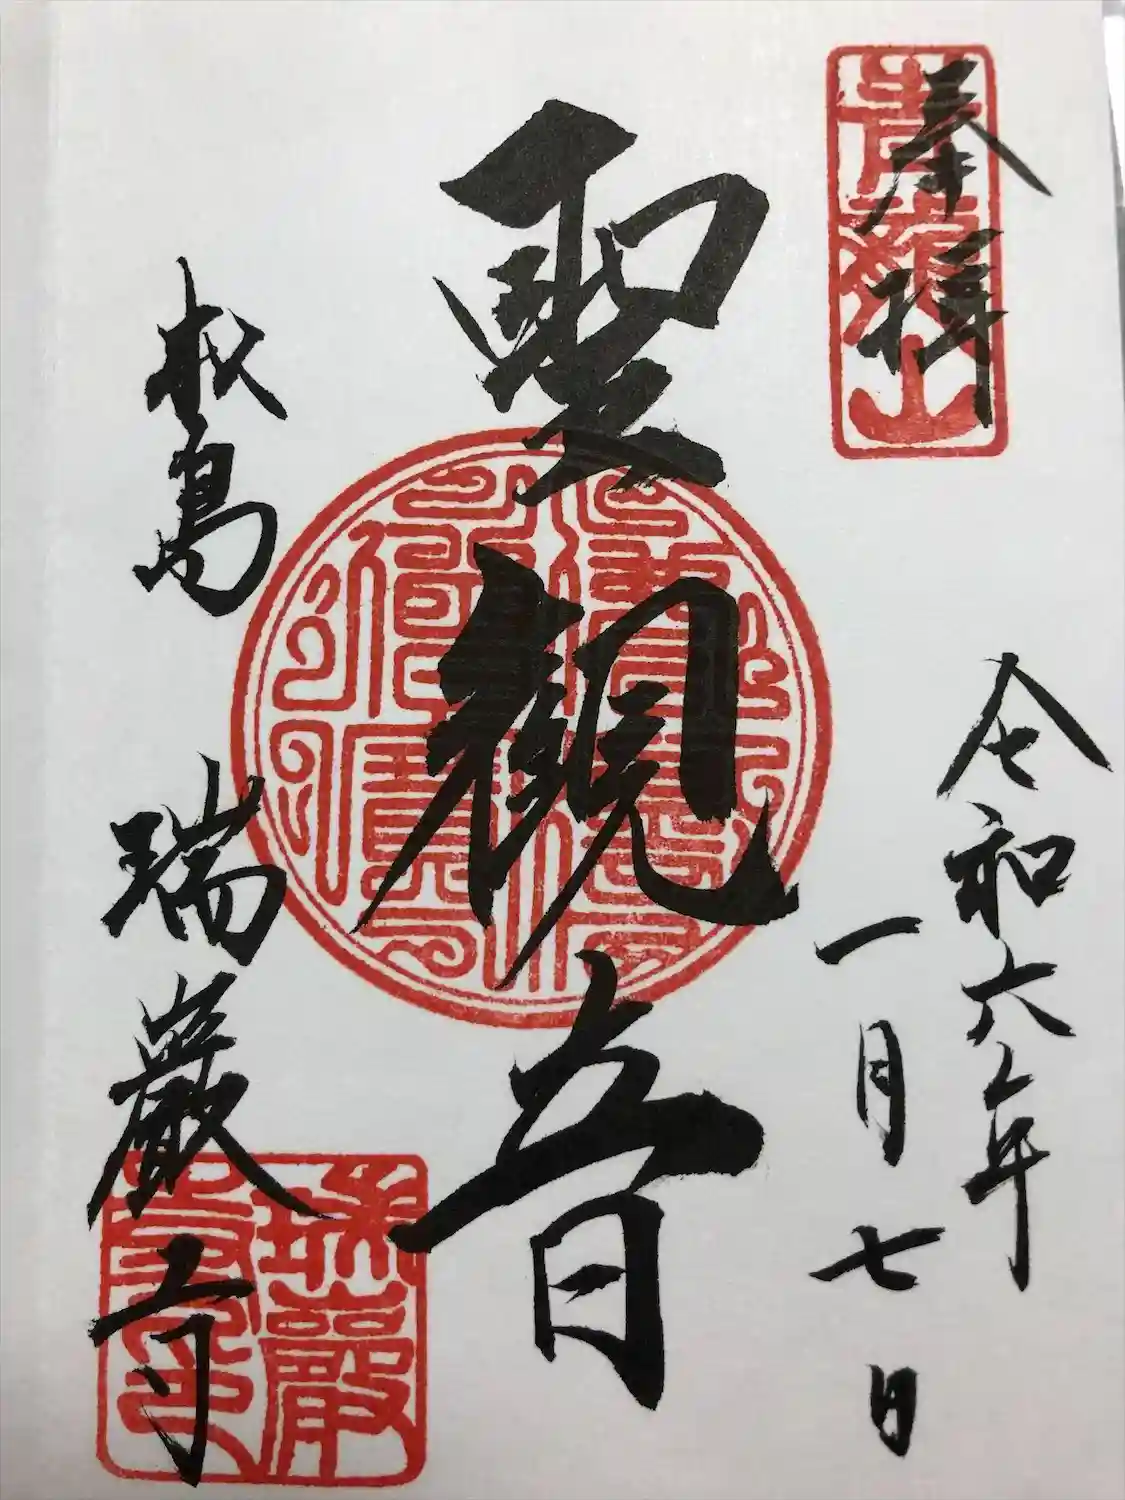 奉拝
令和六年
一月七日
聖観音
松島
瑞巌寺
青龍山
瑞巌